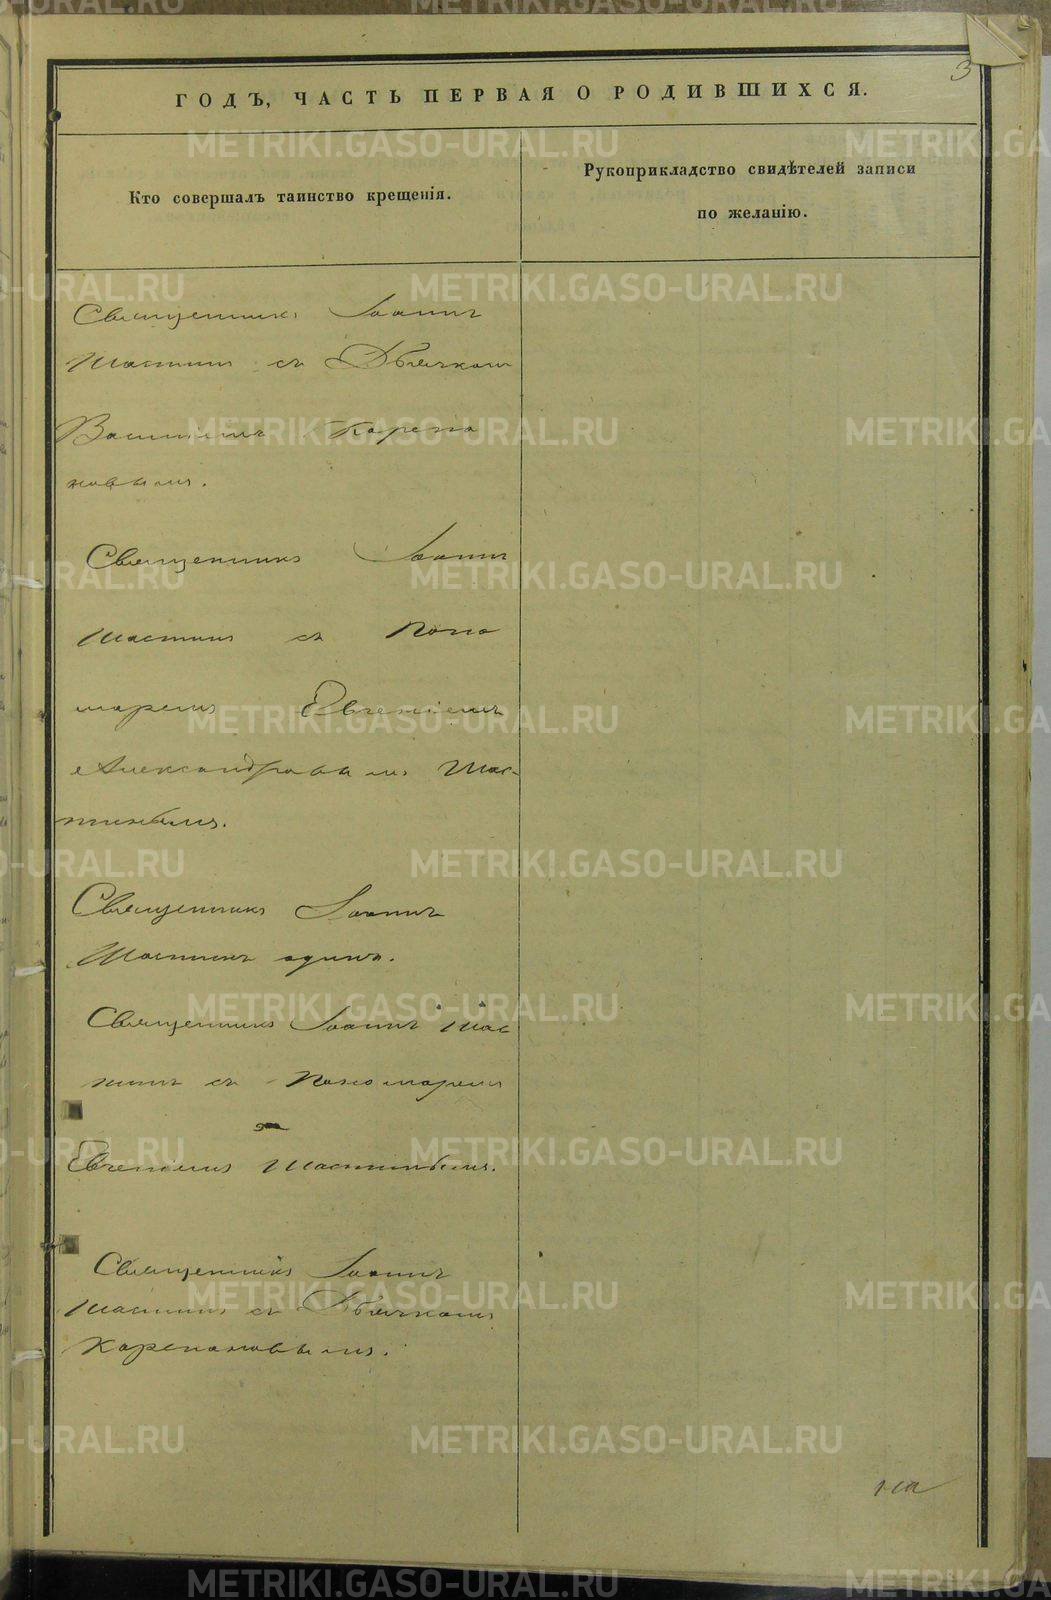 3
ГОДЪ, ЧАСТЬ ПЕРВАЯ О РОДИВШИХСЯ.
Кто совершалъ таинство крещенія.
Рукоприкладство свидѣтелей записи
по желанію.
Священникъ Іоаннъ
Шастинъ съ Дьячкомъ
Василіемъ Карпо
новымъ.
Священникъ Іоаннъ
Шастинъ съ Поно
маремъ Евгеніемъ
Александровымъ Шас-
тинымъ.
Священникъ Іоаннъ
Шастинъ одинъ.
Священникъ Іоаннъ Шас
тинъ съ Пономаремъ
Евгеніемъ Шастинымъ.
Священникъ Іоаннъ
Шастинъ съ Дьячкомъ
Карепановымъ.
METRIKI.GASO-URAL.RU